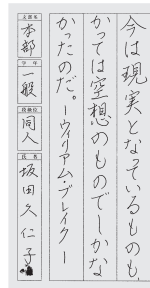 今は現実となっているものも、
かつては空想のものでしかな
かったのだ。ーウィリアム・ブレイクー
支部名
本部
学年
一般
段級位
同人
氏名
坂田久仁子